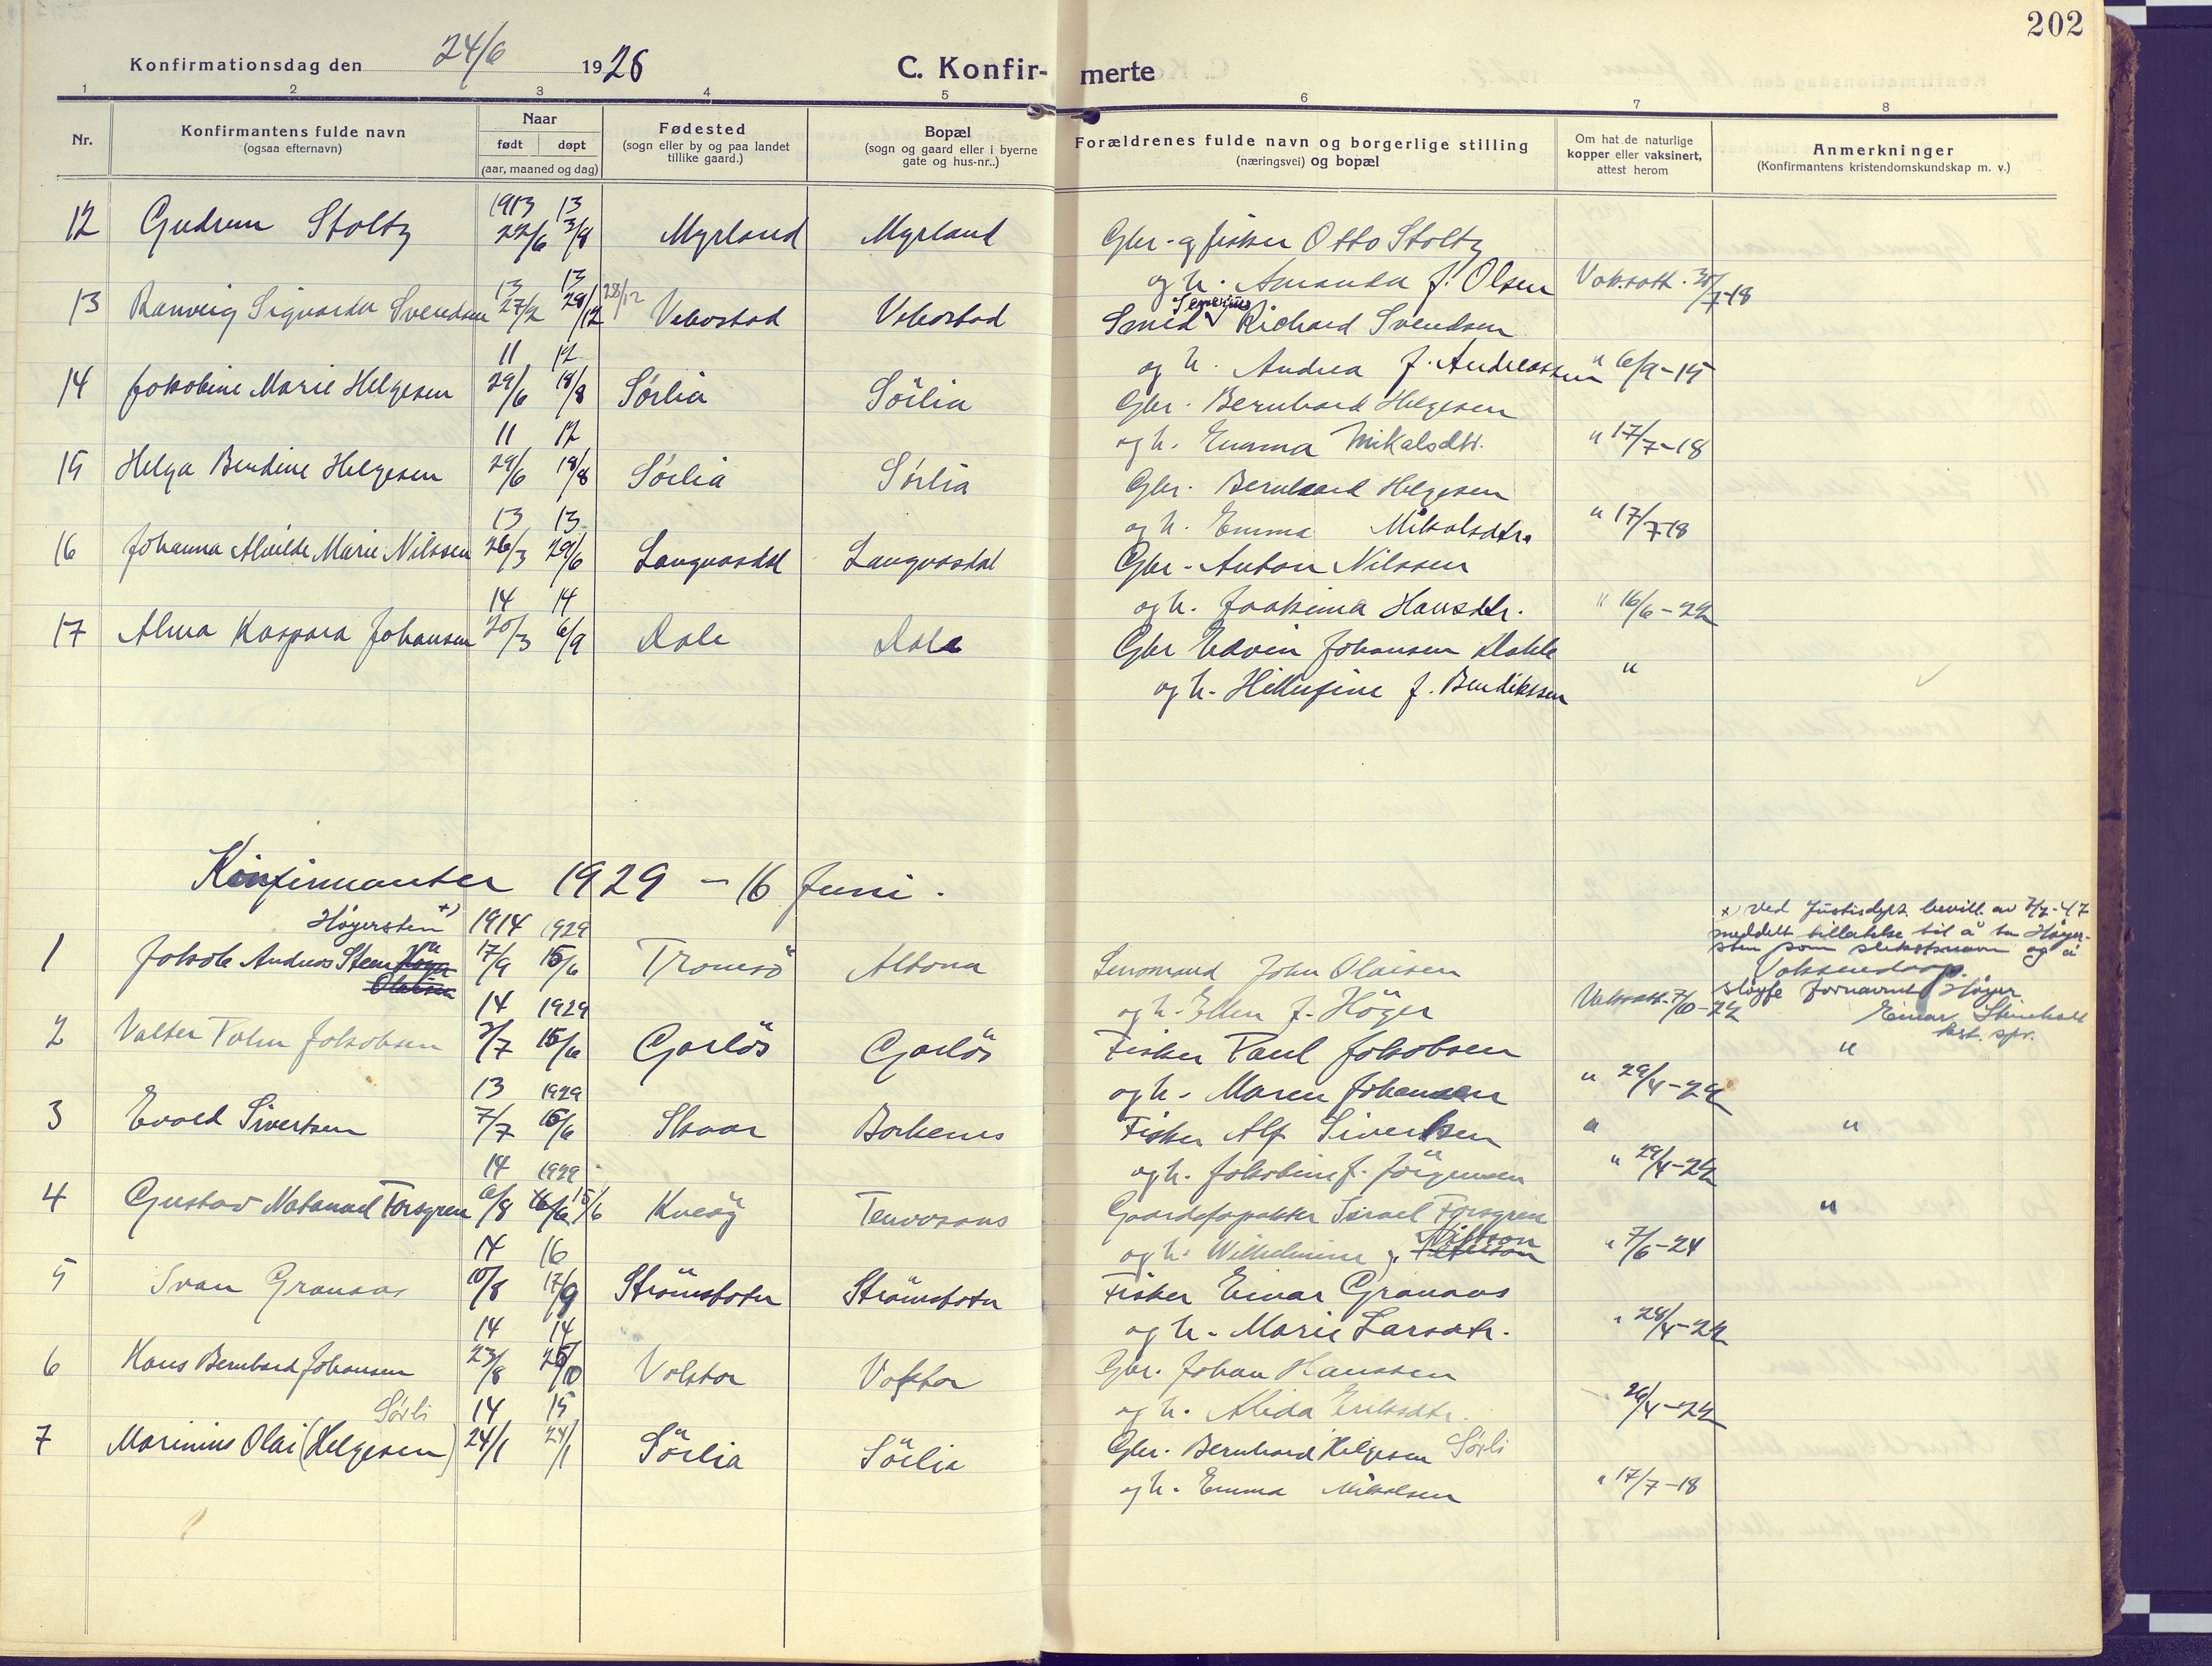 202
Konfirmationsdag den 24/6 1928
C. Konfir- merte
1 2 3 4 5 6 7 8
Nr.
Konfirmantens fulde navn
(ogsaa efternavn)
Naar
født døpt
(aar, maaned og dag)
Fødested
(sogn eller by og paa landet
tillike gaard.)
Bopæl
(sogn og gaard eller i byerne
gate og hus-nr..)
Forældrenes fulde navn og borgerlige stilling
(næringsvei) og bopæl
Om hat de naturlige
kopper eller vaksinert,
attest herom
Anmerkninger
(Konfirmantens kristendomskundskap m. v.)
1913 13
12 Gudrun Stoltz 22/6 3/8 Myrland Myrland Gbr- og fisker Otto Stoltz
og h. Amanda f. Olsen Vaks.att. 30/7-18
13 13
13 Ranveig Sigvarda Svendsen 27/2 28/12 28/12 Vebostad Vebostad Smed Senerius Richard Svendsen
og h. Andrea f. Andreassen " 6/9-15
11 12
14 Jakobine Marie Helgesen 29/6 18/8 Sörlia Sörlia Gbr. Bernhard Helgesen
og h. Emma Mikalsdtr. " 17/7-18
11 12
15 Helga Bendine Helgesen 29/6 18/8 Sörlia Sörlia Gbr. Bernhard Helgesen
og h. Emma Mikalsdtr. " 17/7-18
13 13
16 Johanna Alvilde Marie Nilssen 26/3 29/6 Langvasdal Langvasdal Gbr- Anton Nilssen
og h. Joakima Hansdtr. " 16/6-22
14 14
17 Alma Kaspara Johansen 20/3 6/9 Dale Dale Gbr Edvin Johansen Dahle
og h. f. Bendikssen "
Konfirmanter 1929 - 16 Juni.
Høyersten +) 1914 1929
1 Jakob Andreas Steen Höyer Olaisen 17/9 15/6 Tromsö Altona Lensmand John Olaisen
og h. Ellen f. Höyer Vaks.att. 7/10-22
x) Ved Justisdept. bevill. av 7/2-47
meddelt tillatelse til å ta Høyer-
sten som slektsnavn og å
sløyfe fornavnet Høyer
Voksendaap.
Einar
14 1929
2 Valter Palm Jakobsen 3/7 15/6 Garlös Garlös Fisker Paul Jakobsen "
og h. Maren Johansen " 29/4-29
13 1929
3 Evald Sivertsen 7/7 15/6 Skaar Borkenes Fisker Alf Sivertsen " "
og h. Jakobine f. Jörgensen " 29/4-22
14 1929
4 Gustav Natanael Forsgren 6/8 16/6 15/6 Kveöy Tennvasans Gaardsforpakter Israel Forsgren "
og h. Wilhelmine f. Nilsson " 7/6-24
14 16
5 Ivan Granaas 10/8 17/9 Strömsbotn Strömsbotn Fisker Einar Granaas
og h. Marie Larsdtr. " 28/4-22
14 14
6 Hans Bernhard Johansen 23/8 25/10 Valstor Vaktor Gbr. Johan Hanssen
og h. Alida Eriksdtr. " 26/4-22
Sørli 14 15
7 Marinius Olai (Helgesen) 24/1 24/1 Sörlia Sörlia Gbr. Bernhard Helgesen Sørli
og h. Emma Mikalsen " 17/7-18